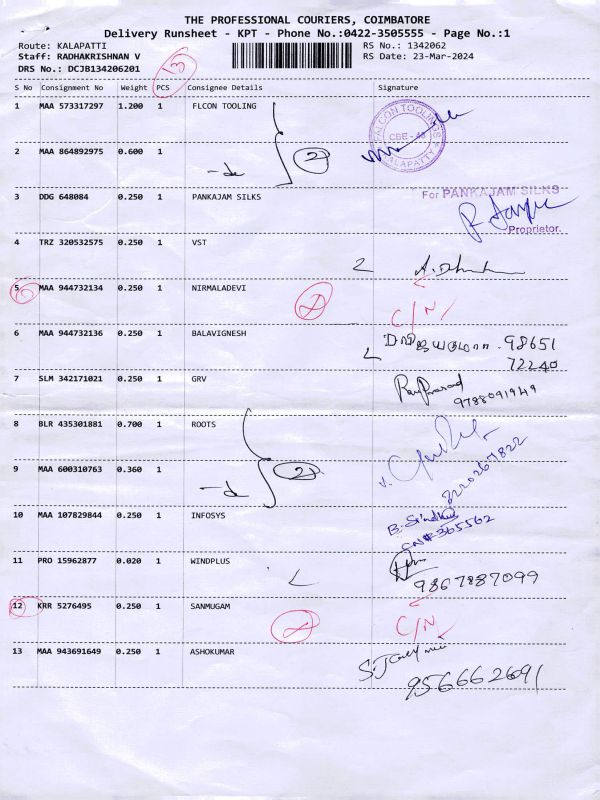 THE PROFESSIONAL COURIERS, COIMBATORE
Delivery Runsheet - KPT - Phone No.:0422-3505555 - Page No.:1
Route: KALAPATTI
RS No.: 1342062
Staff: RADHAKRISHNAN V
RS Date: 23-Mar-2024
DRS No.: DCJB134206201
13
S No Consignment No Weight PCS Consignee Details Signature
1 MAA 573317297 1.200 1 FLCON TOOLING
FALCON TOOLINGS
CBE - 48
KALAPATTY
2 MAA 864892975 0.600 1 -do 2
3 DDG 648084 0.250 1 PANKAJAM SILKS
For PANKAJAM SILKS
Proprietor.
4 TRZ 320532575 0.250 1 VST
5 MAA 944732134 0.250 1 NIRMALADEVI
C/N
6 MAA 944732136 0.250 1 BALAVIGNESH
98651
72240
7 SLM 342171021 0.250 1 GRV
9788091949
8 BLR 435301881 0.700 1 ROOTS
9 MAA 600310763 0.360 1 -do 2
8220267822
10 MAA 107829844 0.250 1 INFOSYS
B. Sindhu
CN# 365562
11 PRO 15962877 0.020 1 WINDPLUS
9867887099
12 KRR 5276495 0.250 1 SANMUGAM
C/N
13 MAA 943691649 0.250 1 ASHOKUMAR
9566662691